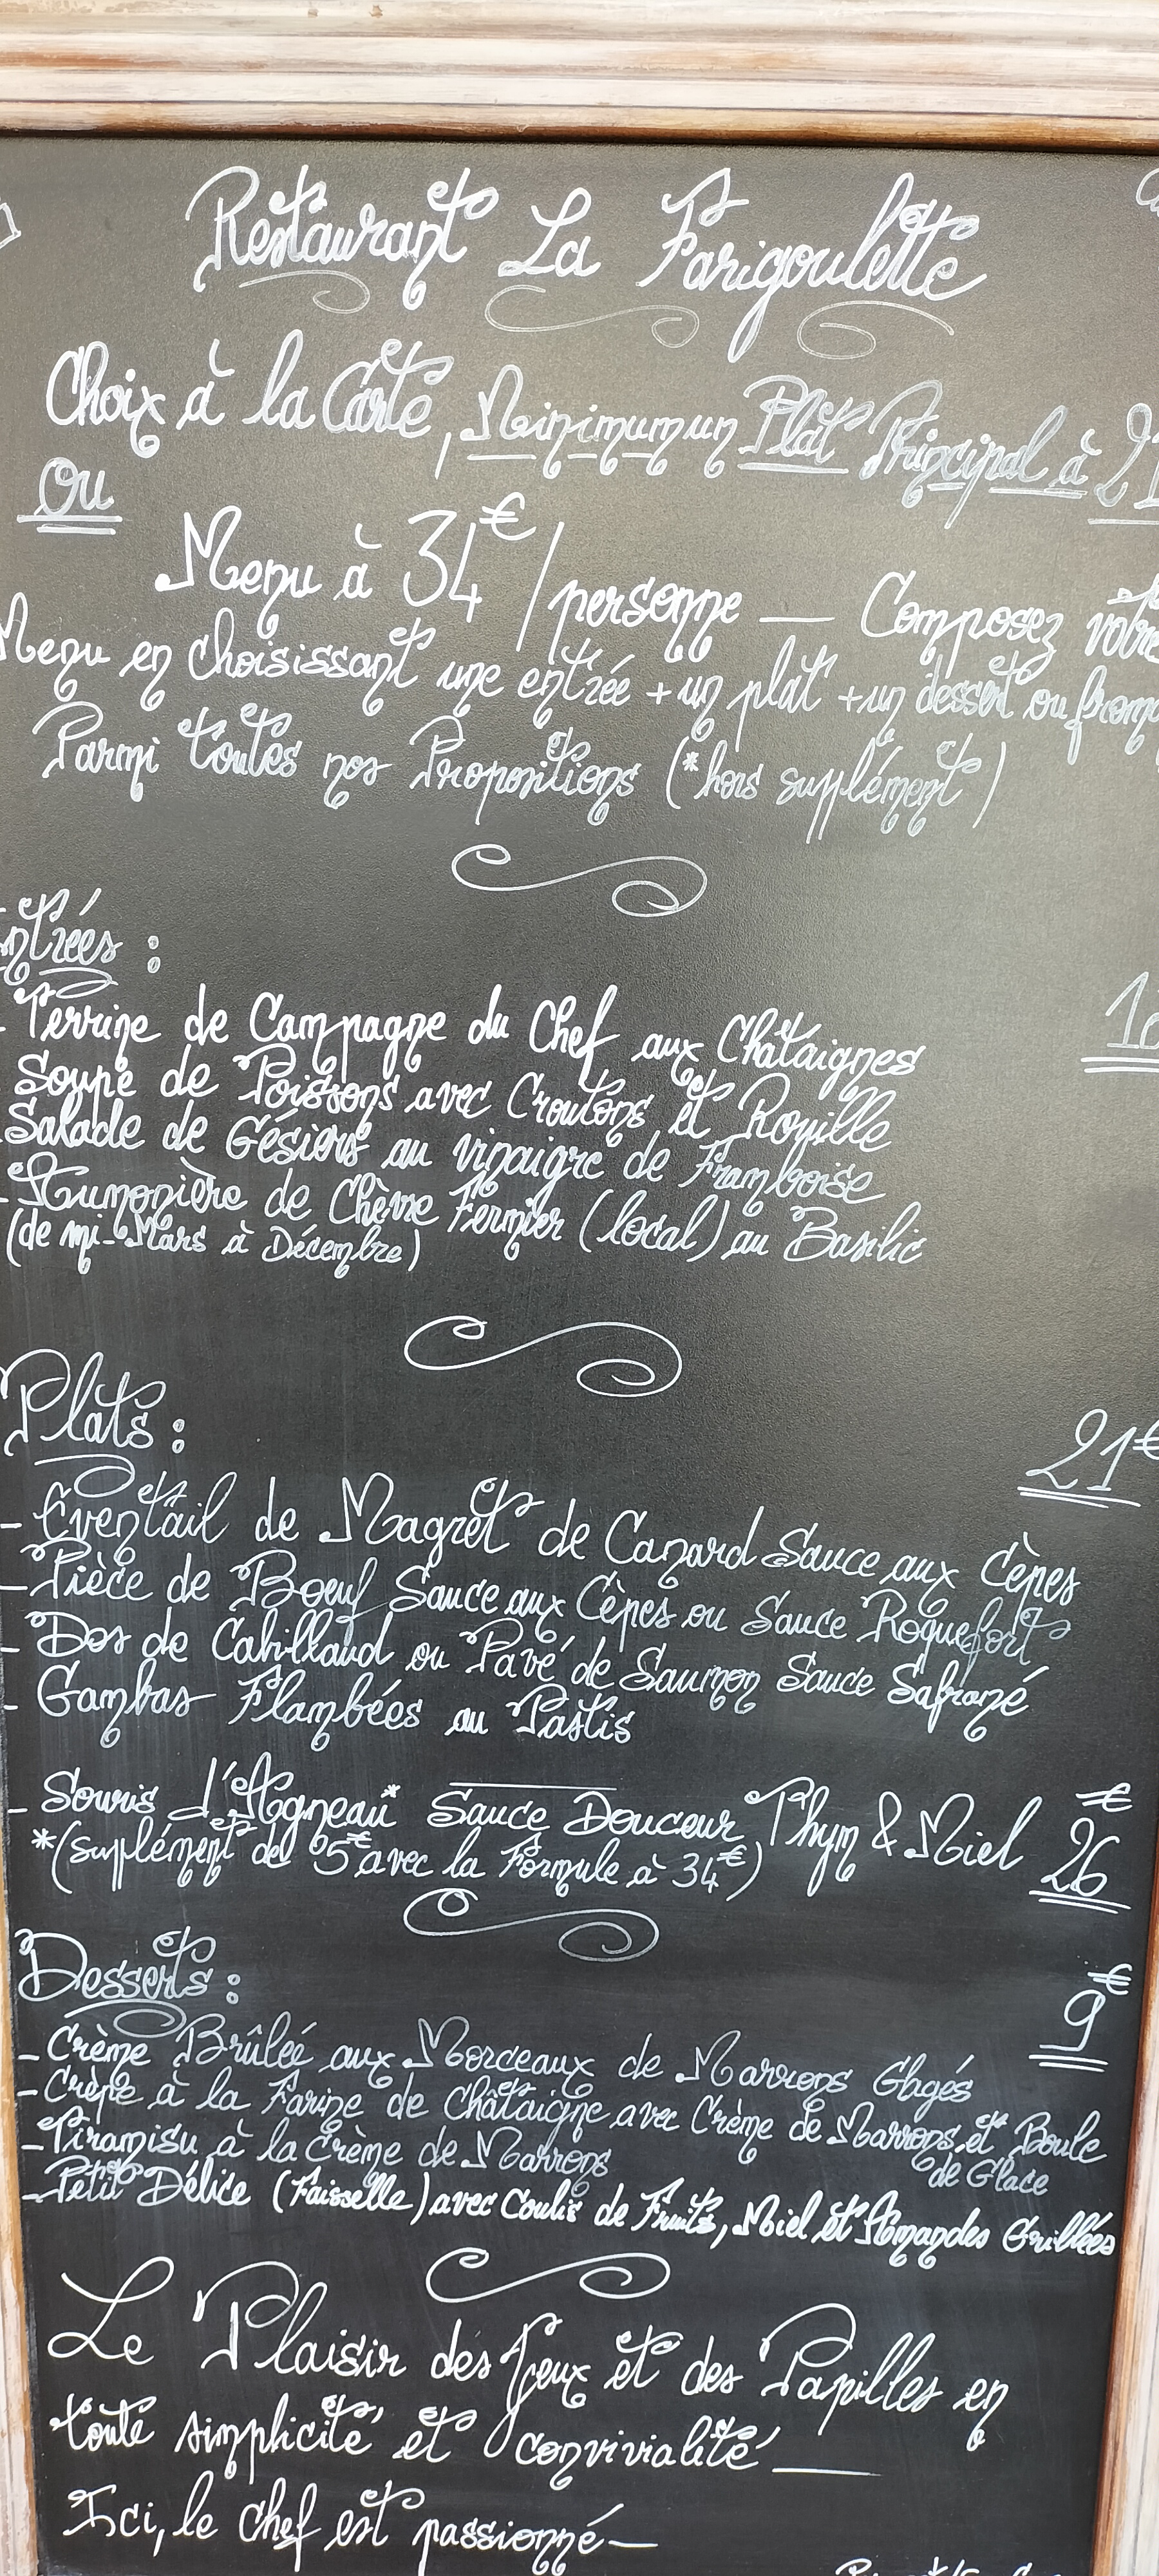 Restaurant La Farigoulette
Choix à la Carte, Minimum un Plat Principal à 21
Ou
Menu à 34€ / personne — Composez votre
Menu en choisissant une entrée + un plat + un dessert ou from
Parmi toutes nos Propositions (*hors supplément)
ntrées :
- Terrine de Campagne du Chef aux Châtaignes
Soupe de Poissons avec Croutons et Rouille
Salade de Gésiers au vinaigre de Framboise
- Aumonière de Chèvre Fermier (local) au Basilic
(de mi-Mars à Décembre)
Plats : 21€
- Eventail de Magret de Canard Sauce aux Cèpes
- Pièce de Boeuf Sauce aux Cèpes ou Sauce Roquefort
- Dos de Cabillaud ou Pavé de Saumon Sauce Safrané
- Gambas Flambées au Pastis
- Souris d'Agneau* Sauce Douceur Thym & Miel 26€
*(supplément de 5€ avec la Formule à 34€)
Desserts : 9€
- Crème Brûlée aux Morceaux de Marrons Glagés
- Crèpe à la Farine de Châtaigne avec Crème de Marrons et Boule
de Glace
- Tiramisu à la Crème de Marrons
- Petit Délice (Faisselle) avec Coulis de Fruits, Miel et Amandes Grillées
Le Plaisir des Yeux et des Papilles en
toute simplicité et convivialité —
Ici, le chef est passionné —